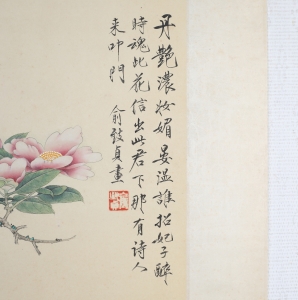 丹艷濃妝媚晏溫誰招妃子醉
時魂此花信出此君下那有诗人
来叩門 俞致貞畫